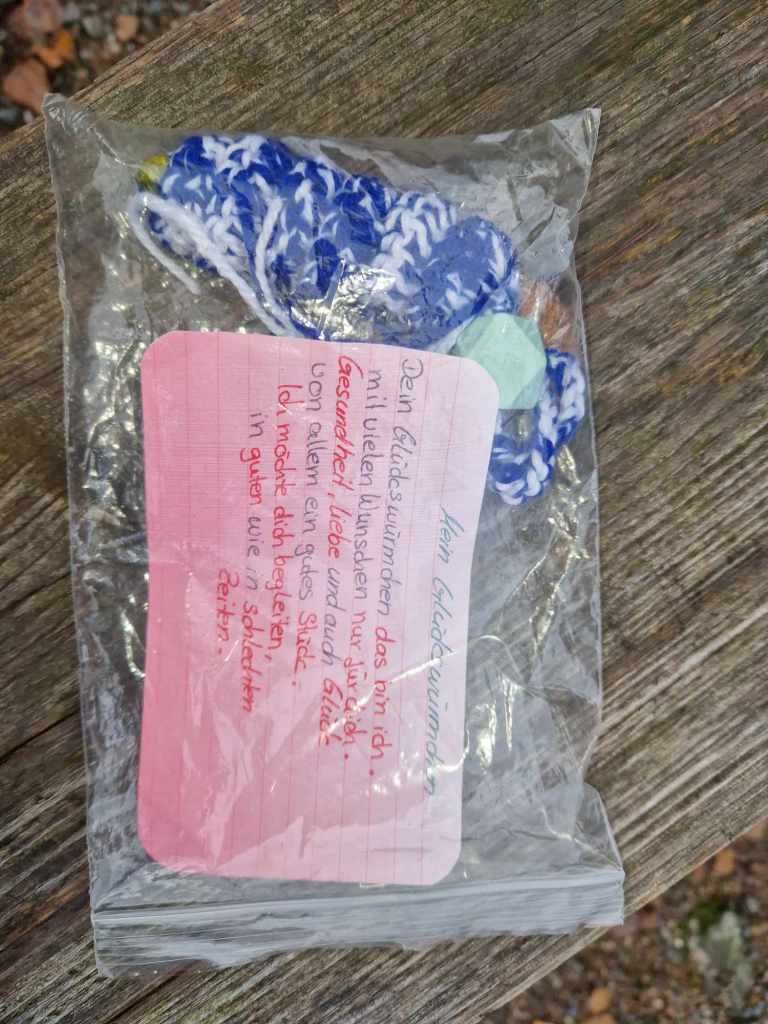 Mein Glückswürmchen
Dein Glückswürmchen das bin ich.
mit vielen Wünschen nur für dich.
Gesundheit, liebe und auch Glück
von allem ein gutes Stück.
Ich möchte dich begleiten,
in guten wie in schlechten
Zeiten.